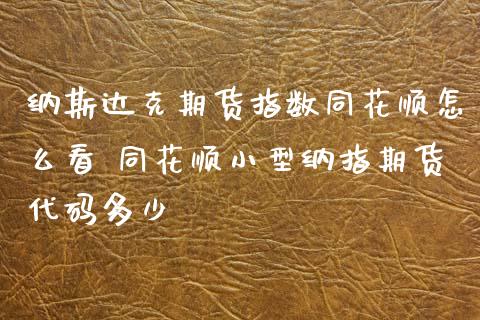 纳斯达克期货指数同花顺怎
么看 同花顺小型纳指期货
代码多少